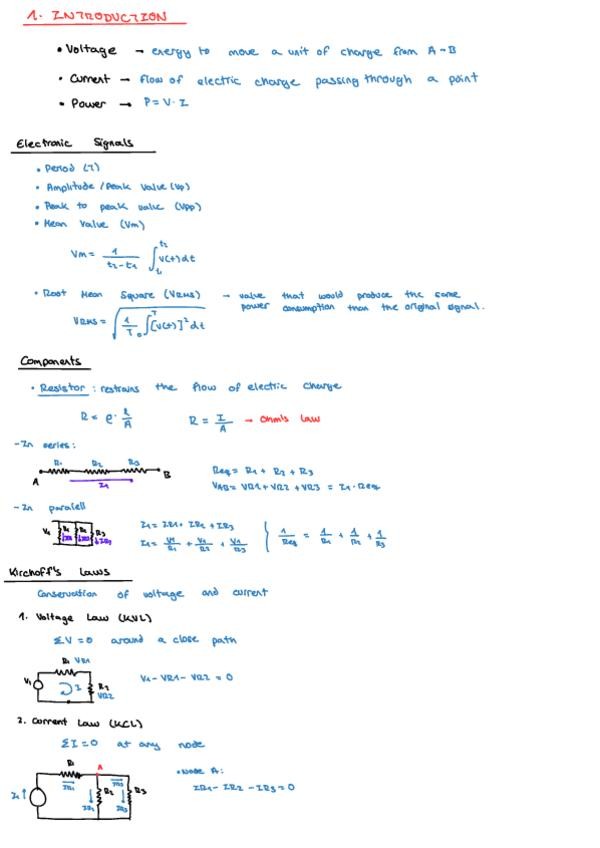 1. INTRODUCTION
• Voltage → energy to move a unit of charge from A-B
• Current → flow of electric charge passing through a point
• Power → P = V · I
Electronic Signals
• Period (T)
• Amplitude / Peak Value (Vp)
• Peak to peak value (Vpp)
• Mean Value (Vm)
Vm = 1/(t2-t1) ∫t1^t2 v(t) dt
• Root Mean Square (VRMS) → value that would produce the same
power consumption than the original signal.
VRMS = √(1/T ∫0^T [v(t)]² dt)
Components
• Resistor : restrains the flow of electric charge
R = ρ · l/A R = I/A → Ohm's law
- In series:
R1 R2 R3
A B
I1
Req = R1 + R2 + R3
VAB = VR1 + VR2 + VR3 = I1 · Req
- In paralell
V1 R1 R2 R3
IR1 IR2 IR3
I1 = IR1 + IR2 + IR3
I1 = V1/R1 + V1/R2 + V1/R3
1/Req = 1/R1 + 1/R2 + 1/R3
Kirchoff's Laws
Conservation of voltage and current
1. Voltage Law (KVL)
ΣV = 0 around a close path
R1 VR1
V1 I R2
VR2
V1 - VR1 - VR2 = 0
2. Current Law (KCL)
ΣI = 0 at any node
R1 A
I1 IR1 R2 IR2 R3 IR3
• Node A:
IR1 - IR2 - IR3 = 0